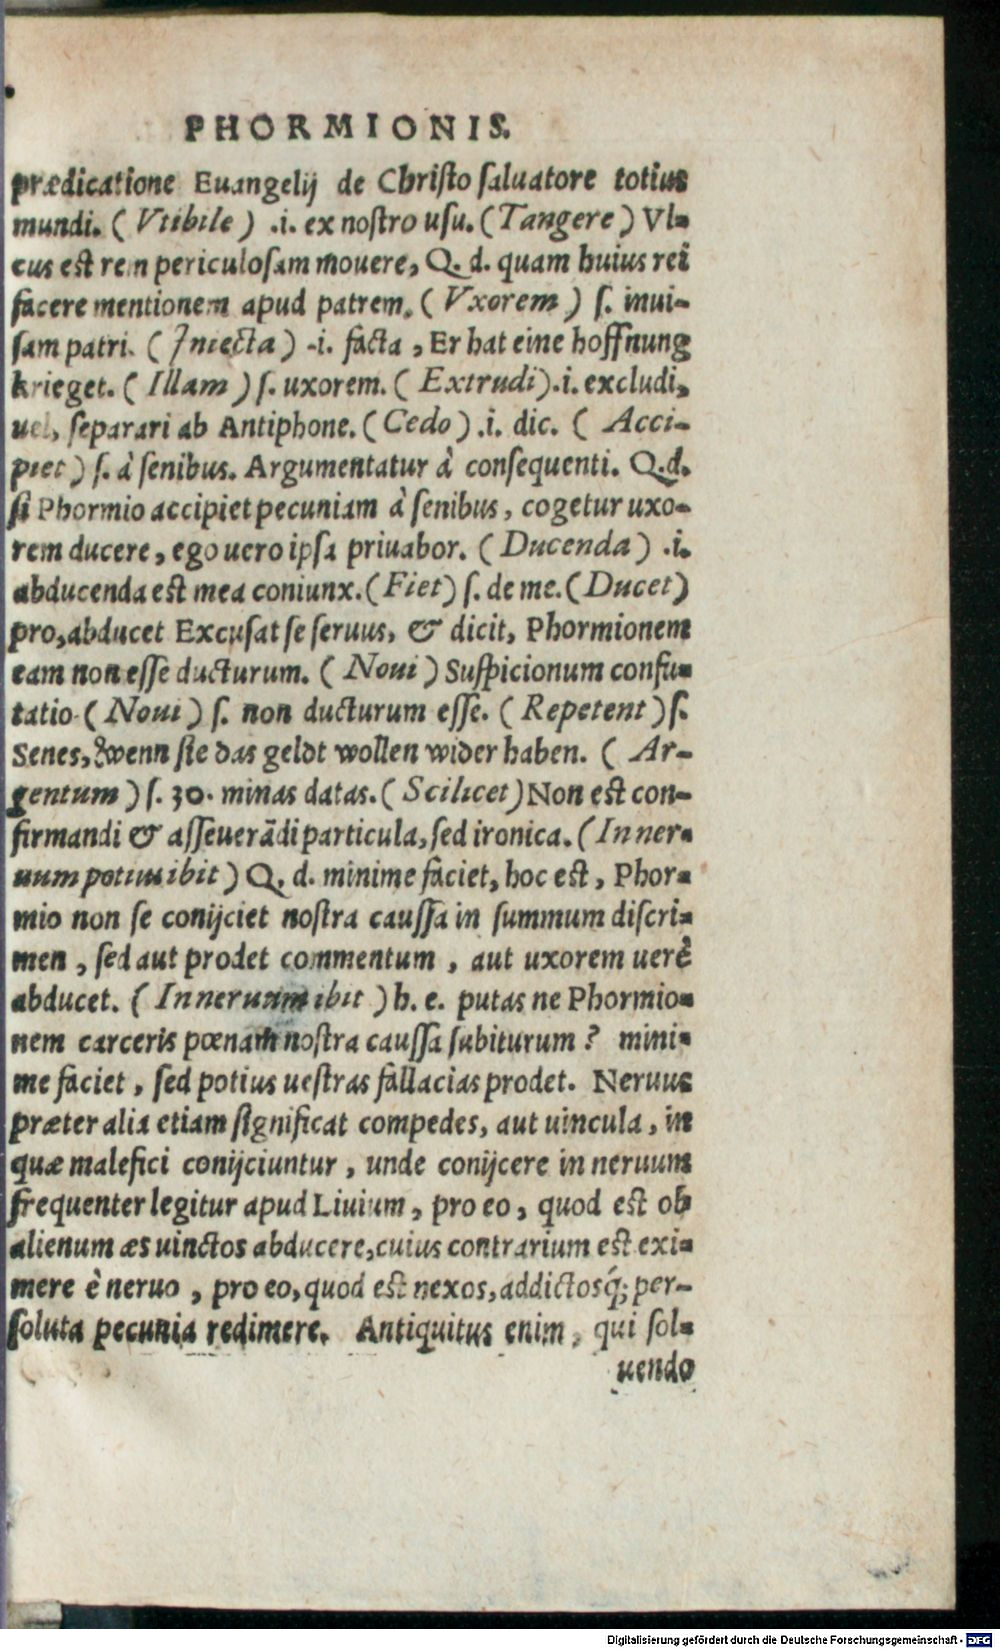 PHORMIONIS.
prædicatione Euangelij de Christo saluatore totius
mundi. ( Vtibile ) .i. ex nostro usu. ( Tangere ) Vl-
cus est rem periculosam mouere, Q. d. quam huius rei
facere mentionem apud patrem. ( Vxorem ) s. inui-
sam patri. ( Iniecta ) .i. facta , Er hat eine hoffnung
krieget. ( Illam ) s. uxorem. ( Extrudi ) .i. excludi,
uel, separari ab Antiphone. ( Cedo ) .i. dic. ( Acci-
piet ) s. à senibus. Argumentatur à consequenti. Q.d.
si Phormio accipiet pecuniam à senibus, cogetur uxo-
rem ducere, ego uero ipsa priuabor. ( Ducenda ) .i.
abducenda est mea coniunx. ( Fiet ) s. de me. ( Ducet )
pro, abducet Excusat se seruus, & dicit, Phormionem
eam non esse ducturum. ( Noui ) Suspicionum confu-
tatio ( Noui ) s. non ducturum esse. ( Repetent ) s.
Senes, wenn sie das geldt wollen wider haben. ( Ar-
gentum ) s. 30. minas datas. ( Scilicet ) Non est con-
firmandi & asseuerādi particula, sed ironica. ( In ner-
uum potius ibit ) Q. d. minime faciet, hoc est, Phor-
mio non se conijciet nostra caussa in summum discri-
men , sed aut prodet commentum , aut uxorem uerè
abducet. ( In neruum ibit ) h. e. putas ne Phormio-
nem carceris pœnam nostra caussa subiturum ? mini-
me faciet , sed potius uestras fallacias prodet. Neruus
præter alia etiam significat compedes, aut uincula, in
quæ malefici conijciuntur , unde conijcere in neruum
frequenter legitur apud Liuium, pro eo, quod est ob
alienum æs uinctos abducere, cuius contrarium est exi-
mere è neruo , pro eo, quod est nexos, addictosq́; per-
soluta pecunia redimere. Antiquitus enim, qui sol-
uendo
Digitalisierung gefördert durch die Deutsche Forschungsgemeinschaft - DFG